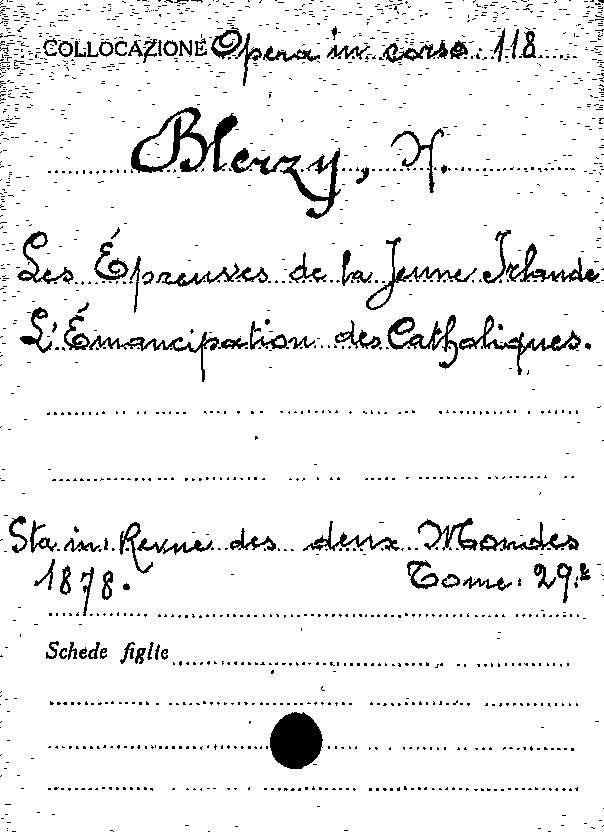 COLLOCAZIONE Opera in corso. 118
Blerzy, H.
Les Épreuves de la Jeune Irlande
L'Émancipation des Catholiques.
Sta in: Revue des deux Mondes
1878. Tome. 29.e
Schede figlie